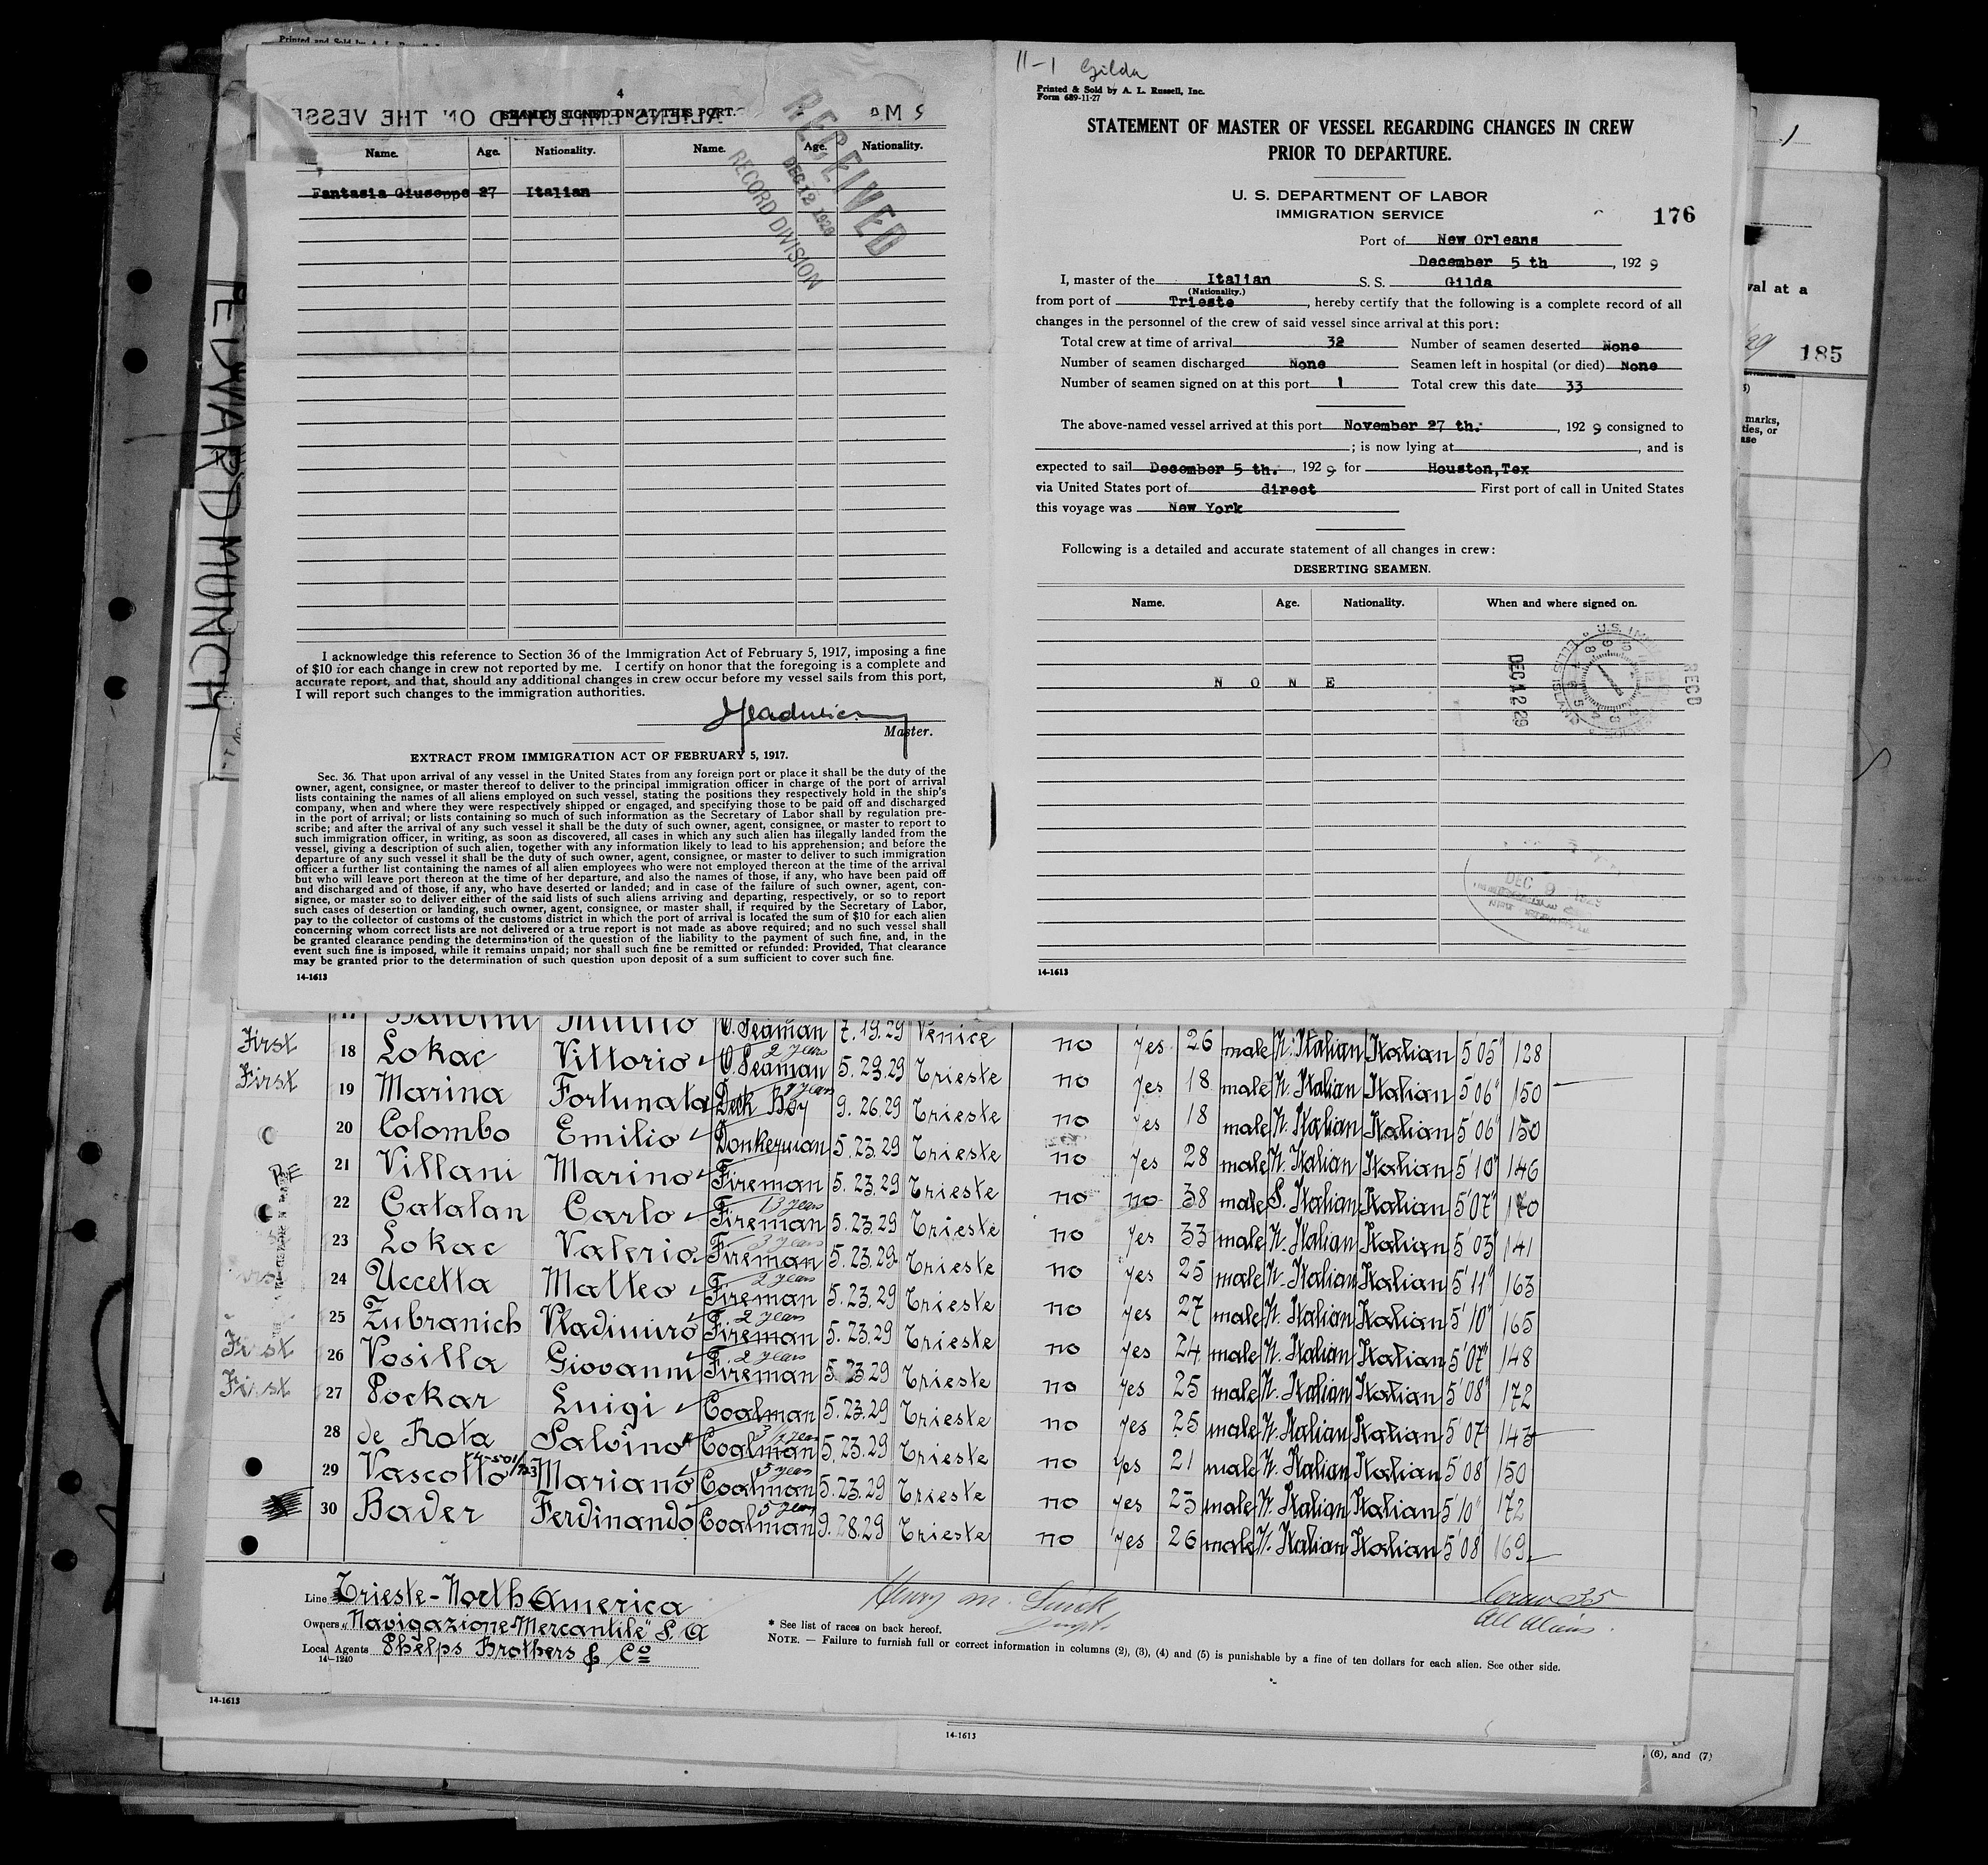 Printed and Sold by A. L.
4
ALIENS EMPLOYED ON THE VESSE
SEAMEN SIGNED ON AT THIS PORT.
Name. Age. Nationality. Name. Age. Nationality.
Fantasia Giuseppe 27 Italian
RECEIVED
DEC 12 1929
RECORD DIVISION
I acknowledge this reference to Section 36 of the Immigration Act of February 5, 1917, imposing a fine
of $10 for each change in crew not reported by me. I certify on honor that the foregoing is a complete and
accurate report, and that, should any additional changes in crew occur before my vessel sails from this port,
I will report such changes to the immigration authorities.
Master.
EXTRACT FROM IMMIGRATION ACT OF FEBRUARY 5, 1917.
Sec. 36. That upon arrival of any vessel in the United States from any foreign port or place it shall be the duty of the
owner, agent, consignee, or master thereof to deliver to the principal immigration officer in charge of the port of arrival
lists containing the names of all aliens employed on such vessel, stating the positions they respectively hold in the ship's
company, when and where they were respectively shipped or engaged, and specifying those to be paid off and discharged
in the port of arrival; or lists containing so much of such information as the Secretary of Labor shall by regulation pre-
scribe; and after the arrival of any such vessel it shall be the duty of such owner, agent, consignee, or master to report to
such immigration officer, in writing, as soon as discovered, all cases in which any such alien has illegally landed from the
vessel, giving a description of such alien, together with any information likely to lead to his apprehension; and before the
departure of any such vessel it shall be the duty of such owner, agent, consignee, or master to deliver to such immigration
officer a further list containing the names of all alien employees who were not employed thereon at the time of the arrival
but who will leave port thereon at the time of her departure, and also the names of those, if any, who have been paid off
and discharged and of those, if any, who have deserted or landed; and in case of the failure of such owner, agent, con-
signee, or master so to deliver either of the said lists of such aliens arriving and departing, respectively, or so to report
such cases of desertion or landing, such owner, agent, consignee, or master shall, if required by the Secretary of Labor,
pay to the collector of customs of the customs district in which the port of arrival is located the sum of $10 for each alien
concerning whom correct lists are not delivered or a true report is not made as above required; and no such vessel shall
be granted clearance pending the determination of the question of the liability to the payment of such fine, and, in the
event such fine is imposed, while it remains unpaid; nor shall such fine be remitted or refunded: Provided, That clearance
may be granted prior to the determination of such question upon deposit of a sum sufficient to cover such fine.
14-1613
11-1 Gilda
Printed & Sold by A. L. Russell, Inc.
Form 689-11-27
STATEMENT OF MASTER OF VESSEL REGARDING CHANGES IN CREW
PRIOR TO DEPARTURE.
U. S. DEPARTMENT OF LABOR
IMMIGRATION SERVICE
176
Port of New Orleans
December 5 th, 1929
I, master of the Italian S. S. Gilda
(Nationality.)
from port of Trieste, hereby certify that the following is a complete record of all
changes in the personnel of the crew of said vessel since arrival at this port:
Total crew at time of arrival 32 Number of seamen deserted None
Number of seamen discharged None Seamen left in hospital (or died) None
Number of seamen signed on at this port 1 Total crew this date 33
The above-named vessel arrived at this port November 27 th., 1929 consigned to
; is now lying at , and is
expected to sail December 5 th., 1929 for Houston,Tex
via United States port of direct First port of call in United States
this voyage was New York
Following is a detailed and accurate statement of all changes in crew:
DESERTING SEAMEN.
Name. Age. Nationality. When and where signed on.
N O N E
DEC 12 29
RECD
DEC 9 1929
14-1613
EDWARD MUNCH
val at a
185
marks,
ties, or
ase
17 O. Seaman 7.19.29 Venice no yes 26 male N. Italian Italian 5'05" 128
First 18 Lokac Vittorio O. Seaman 2 years 5.29.29 Trieste no yes 18 male N. Italian Italian 5'06" 150
First 19 Marina Fortunata Deck Boy 9.26.29 Trieste no yes 18 male N. Italian Italian 5'06" 150
20 Colombo Emilio Donkeyman 5.23.29 Trieste no yes 28 male N. Italian Italian 5'10" 146
21 Villani Marino Fireman 5.23.29 Trieste no no 38 male S. Italian Italian 5'07" 170
22 Catalan Carlo Fireman 13 years 5.23.29 Trieste no yes 33 male N. Italian Italian 5'03" 141
23 Lokac Valerio Fireman 3 years 5.23.29 Trieste no yes 25 male N. Italian Italian 5'11" 163
24 Uccetta Matteo Fireman 2 years 5.23.29 Trieste no yes 27 male N. Italian Italian 5'10" 165
25 Zubranich Vladimiro Fireman 2 years 5.23.29 Trieste no yes 24 male N. Italian Italian 5'07" 148
First 26 Vosilla Giovanni Fireman 2 years 5.23.29 Trieste no yes 25 male N. Italian Italian 5'08" 172
First 27 Pockar Luigi Coalman 5.23.29 Trieste no yes 25 male N. Italian Italian 5'07" 143
28 de Rota Salvino Coalman 5.23.29 Trieste no yes 21 male N. Italian Italian 5'08" 150
29 Vascotto Mariano Coalman 3 years 5.23.29 Trieste no yes 23 male N. Italian Italian 5'10" 172
30 Bader Ferdinando Coalman 5 years 9.28.29 Trieste no yes 26 male N. Italian Italian 5'08" 169
Line Trieste-North America
Owners "Navigazione Mercantile" S. A
Local Agents Phelps Brothers & Co
14-1240
* See list of races on back hereof.
NOTE. — Failure to furnish full or correct information in columns (2), (3), (4) and (5) is punishable by a fine of ten dollars for each alien. See other side.
Crew 35
All Aliens.
14-1613
14-1613
, (6), and (7)